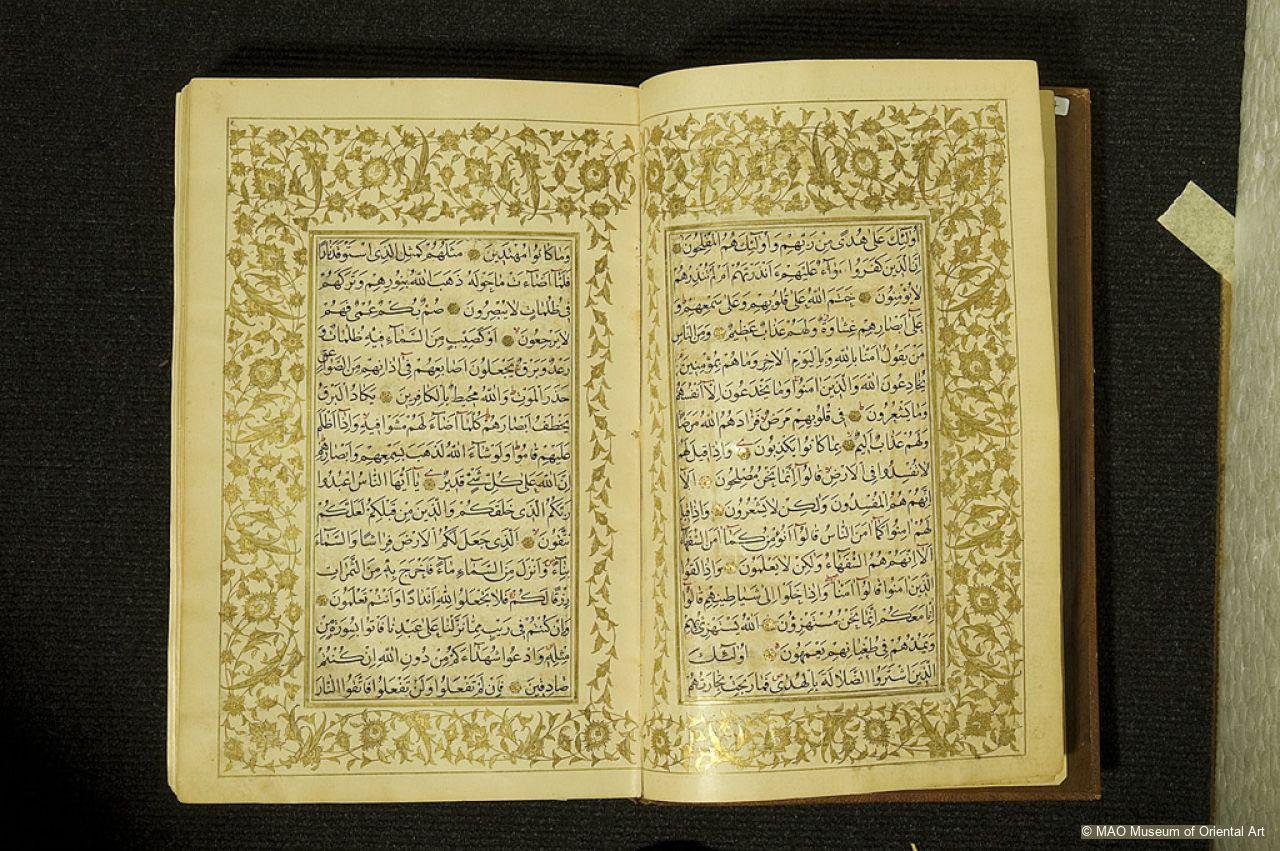 أولئك على هدى من ربهم وأولئك هم المفلحون
إن الذين كفروا سواء عليهم ءأنذرتهم أم لم تنذرهم
لا يؤمنون ختم الله على قلوبهم وعلى سمعهم و
على أبصارهم غشاوة ولهم عذاب عظيم ومن الناس
من يقول آمنا بالله وباليوم الآخر وما هم بمؤمنين
يخادعون الله والذين آمنوا وما يخدعون إلا أنفسهم
وما يشعرون في قلوبهم مرض فزادهم الله مرضا
ولهم عذاب أليم بما كانوا يكذبون وإذا قيل لهم
لا تفسدوا في الأرض قالوا إنما نحن مصلحون ألا
إنهم هم المفسدون ولكن لا يشعرون وإذا قيل
لهم آمنوا كما آمن الناس قالوا أنؤمن كما آمن السفهاء
ألا إنهم هم السفهاء ولكن لا يعلمون وإذا لقوا
الذين آمنوا قالوا آمنا وإذا خلوا إلى شياطينهم قالوا
إنا معكم إنما نحن مستهزؤن الله يستهزئ بهم
ويمدهم في طغيانهم يعمهون أولئك
الذين اشتروا الضلالة بالهدى فما ربحت تجارتهم
وما كانوا مهتدين مثلهم كمثل الذي استوقد نارا
فلما أضاءت ما حوله ذهب الله بنورهم وتركهم
في ظلمات لا يبصرون صم بكم عمي فهم
لا يرجعون أو كصيب من السماء فيه ظلمات و
رعد وبرق يجعلون أصابعهم في آذانهم من الصواعق
حذر الموت والله محيط بالكافرين يكاد البرق
يخطف أبصارهم كلما أضاء لهم مشوا فيه وإذا أظلم
عليهم قاموا ولو شاء الله لذهب بسمعهم وأبصارهم
إن الله على كل شيء قدير يا أيها الناس اعبدوا
ربكم الذي خلقكم والذين من قبلكم لعلكم
تتقون الذي جعل لكم الأرض فراشا والسماء
بناء وأنزل من السماء ماء فأخرج به من الثمرات
رزقا لكم فلا تجعلوا لله أندادا وأنتم تعلمون
وإن كنتم في ريب مما نزلنا على عبدنا فأتوا بسورة من
مثله وادعوا شهداءكم من دون الله إن كنتم
صادقين فإن لم تفعلوا ولن تفعلوا فاتقوا النار
© MAO Museum of Oriental Art